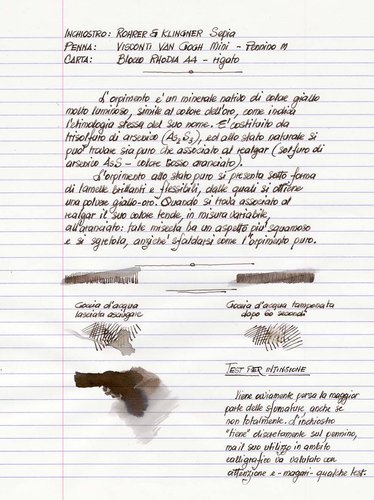 INCHIOSTRO: ROHRER & KLINGNER Sepia
PENNA: VISCONTI VAN GOGH MINI - Pennino M
CARTA: BLOCCO RHODIA A4 - rigato
L'orpimento e' un minerale nativo di colore giallo
molto luminoso, simile al colore dell'oro, come indica
l'etimologia stessa del suo nome. E' costituito da
trisolfuro di arsenico (As2S3), ed allo stato naturale si
puo' trovare sia puro che associato al realgar (solfuro di
arsenico AsS - colore rosso aranciato).
L'orpimento allo stato puro si presenta sotto forma
di lamelle brillanti e flessibili, dalle quali si ottiene
una polvere giallo-oro. Quando si trova associato al
realgar il suo colore tende, in misura variabile,
all'aranciato: tale miscela ha un aspetto piu' squamoso
e si sgretola, anziche' sfaldarsi come l'orpimento puro.
Goccia d'acqua
lasciata asciugare
Goccia d'acqua tamponata
dopo 60 secondi
TEST PER INTINSIONE
Viene ovviamente persa la maggior
parte delle sfumature, anche se
non totalmente. L'inchiostro
"tiene" discretamente sul pennino,
ma il suo utilizzo in ambito
calligrafico va valutato con
attenzione e - magari - qualche test.